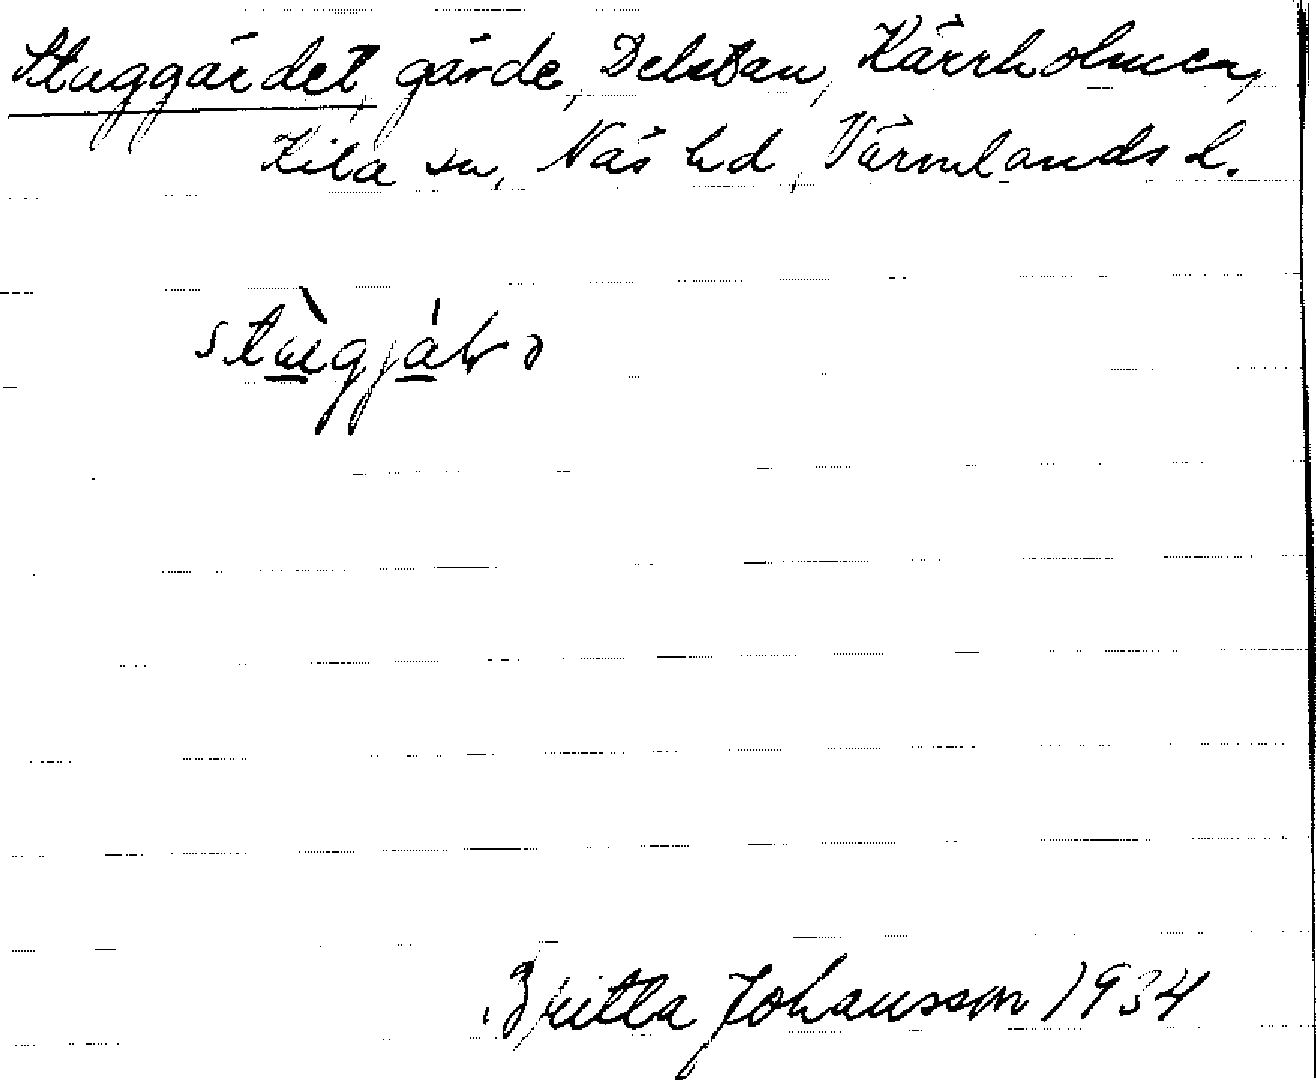 Stuggärdet, gärde, Delstan, Kärrholmen,
Kila sn, Näs hd, Värmlands l.
Britta Johansson 1934